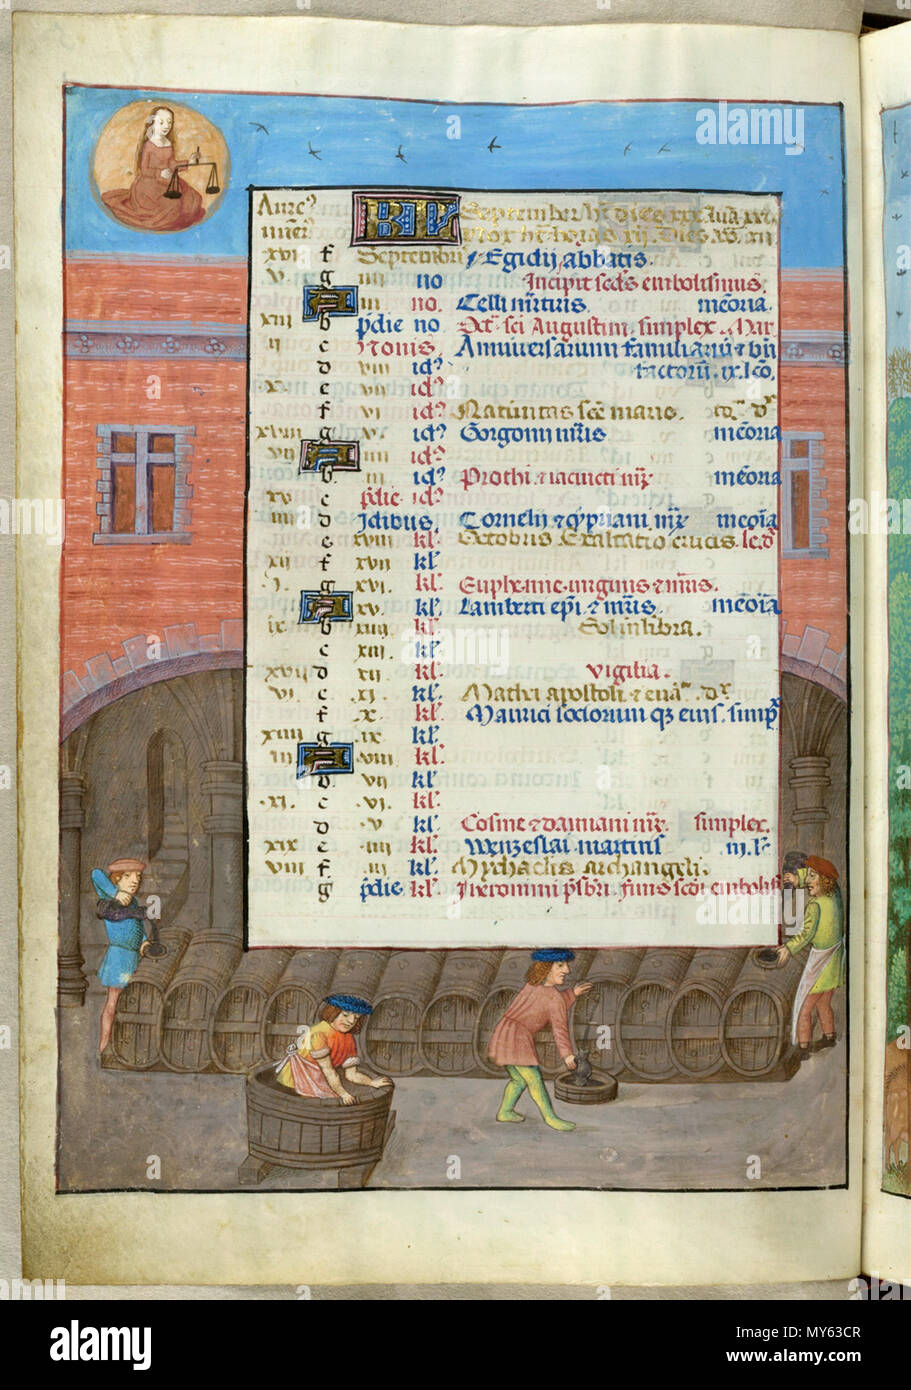 Aure⁹ KL September ht Dies xxx luā xxx
nūer⁹ Nox ht horas xii. Dies v̄o xii
xvi f Septembris Egidii abbatis.
v g iiii no Incipit sedes embolismus.
A iii no. Celli mrtiris memoria
xiii b pdie no Oct sci Augustini simplex
ii c Nonis Anniversarium familiariū et bn
d viii id⁹ factorū ix lco
x e vii id⁹
f vi id⁹ Nativitas sce marie.
xviii g v id⁹ Gorgonii mris memoria
vii A iiii id⁹
b iii id⁹ Prothi et iacincti mr memoria
xv c pdie id⁹
iiii d Idibus Cornelii et cypriani mr memoria
e xviii kl Octobris Exaltatio crucis
xii f xvii kl
i g xvi kl Euphemie virginis et mris.
A xv kl Lamberti epi et mris memoria
ix b xiiii kl Sol in libra.
c xiii kl
xvii d xii kl vigilia.
vi e xi kl Mathei apostoli et evā
f x kl Maurici sociorum q₃ eius. simp
xiiii g ix kl
iii A viii kl
b vii kl
xi c vi kl
d v kl Cosme et damiani mr simplex.
xix e iiii kl Wenzeslai martiris iii.lc
viii f iii kl Mychaelis Archangeli.
g pdie kl Hieronimi psbri. finis sedi embolis
alamy
MY63CR
www.alamy.com